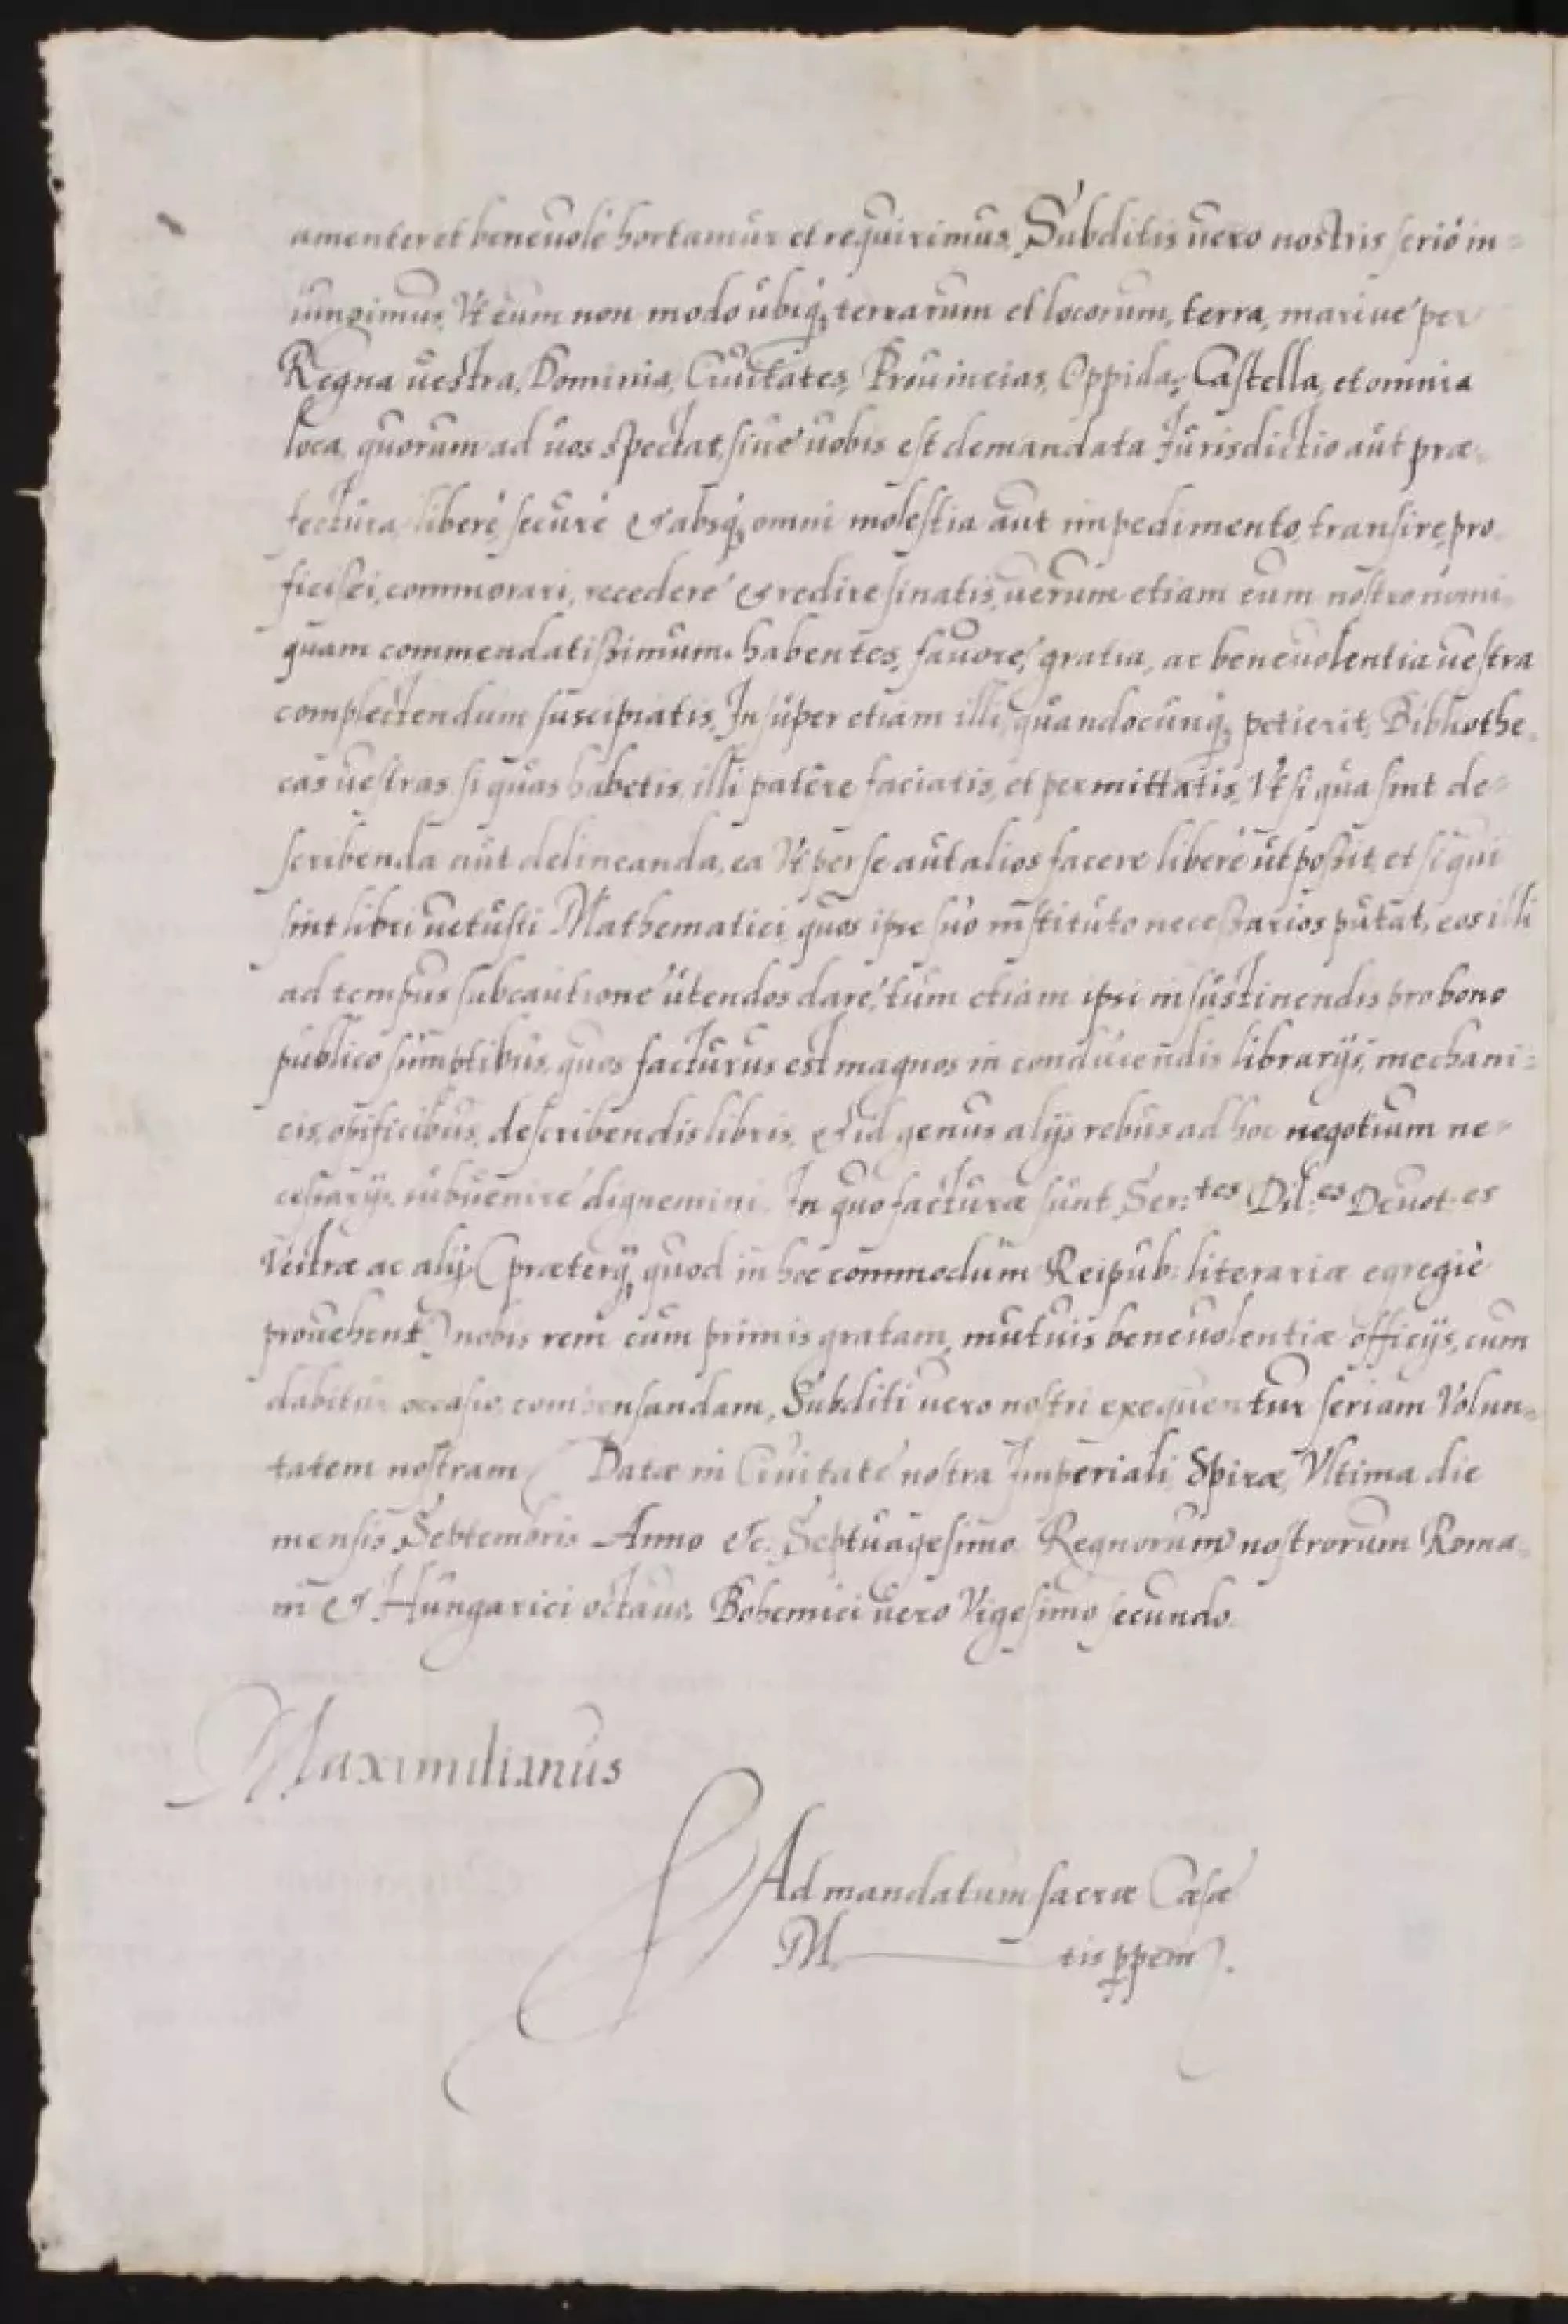 amenter et beneuolè hortamur et requirimus, Subditis uero nostris seriò in=
iungimus, Vt eum non modo ubiq; terrarum et locorum, terra, mariue per
Regna uestra, Dominia, Ciuitates, Prouincias, Oppida, Castella, et omnia
loca, quorum ad uos spectat, siue uobis est demandata Jurisdictio aut præ=
fectura, liberè, securè & absq; omni molestia aut impedimento, transire, pro=
ficisci, commorari, recedere & redire sinatis, uerum etiam eum nostro nomi=
quam commendatißimum habentes, fauore, gratia, ac beneuolentia uestra
complectendum suscipiatis. Insuper etiam illi, quandocunq; petierit, Bibliothe=
cas uestras si quas habetis, illi patêre faciatis, et permittatis, Vt si qua sint de=
scribenda aut delineanda, ea Vt per se aut alios facere liberè ut poßit, et si qui
sint libri uetusti Mathematici, quos ipse suo instituto neceßarios putat, eos illi
ad tempus sub cautione utendos dare, tum etiam ipsi in sustinendis pro bono
publico sumptibus, quos facturus est magnos in conducendis librarijs, mechani=
cis, opificibus, describendis libris, & id genus alijs rebus ad hoc negotium ne=
ceßarijs, subuenire dignemini. In quo facturæ sunt Ser:tes Dil:es Deuot:es
Vestræ ac alij (præterq; quod in hoc commodum Reipub: literariæ egregiè
prouehent) nobis rem cum primis gratam, mutuis beneuolentiæ officijs, cum
dabitur occasio, compensandam, Subditi uero nostri exequentur seriam Volun=
tatem nostram. Datæ in Ciuitate nostra Imperiali Spiræ, Vltima die
mensis Septembris Anno &c. Septuagesimo. Regnorum nostrorum Roma=
ni & Hungarici octauo, Bohemici uero Vigesimo secundo.
Maximilianus
Ad mandatum sacræ Cæsæ
M tis ppem